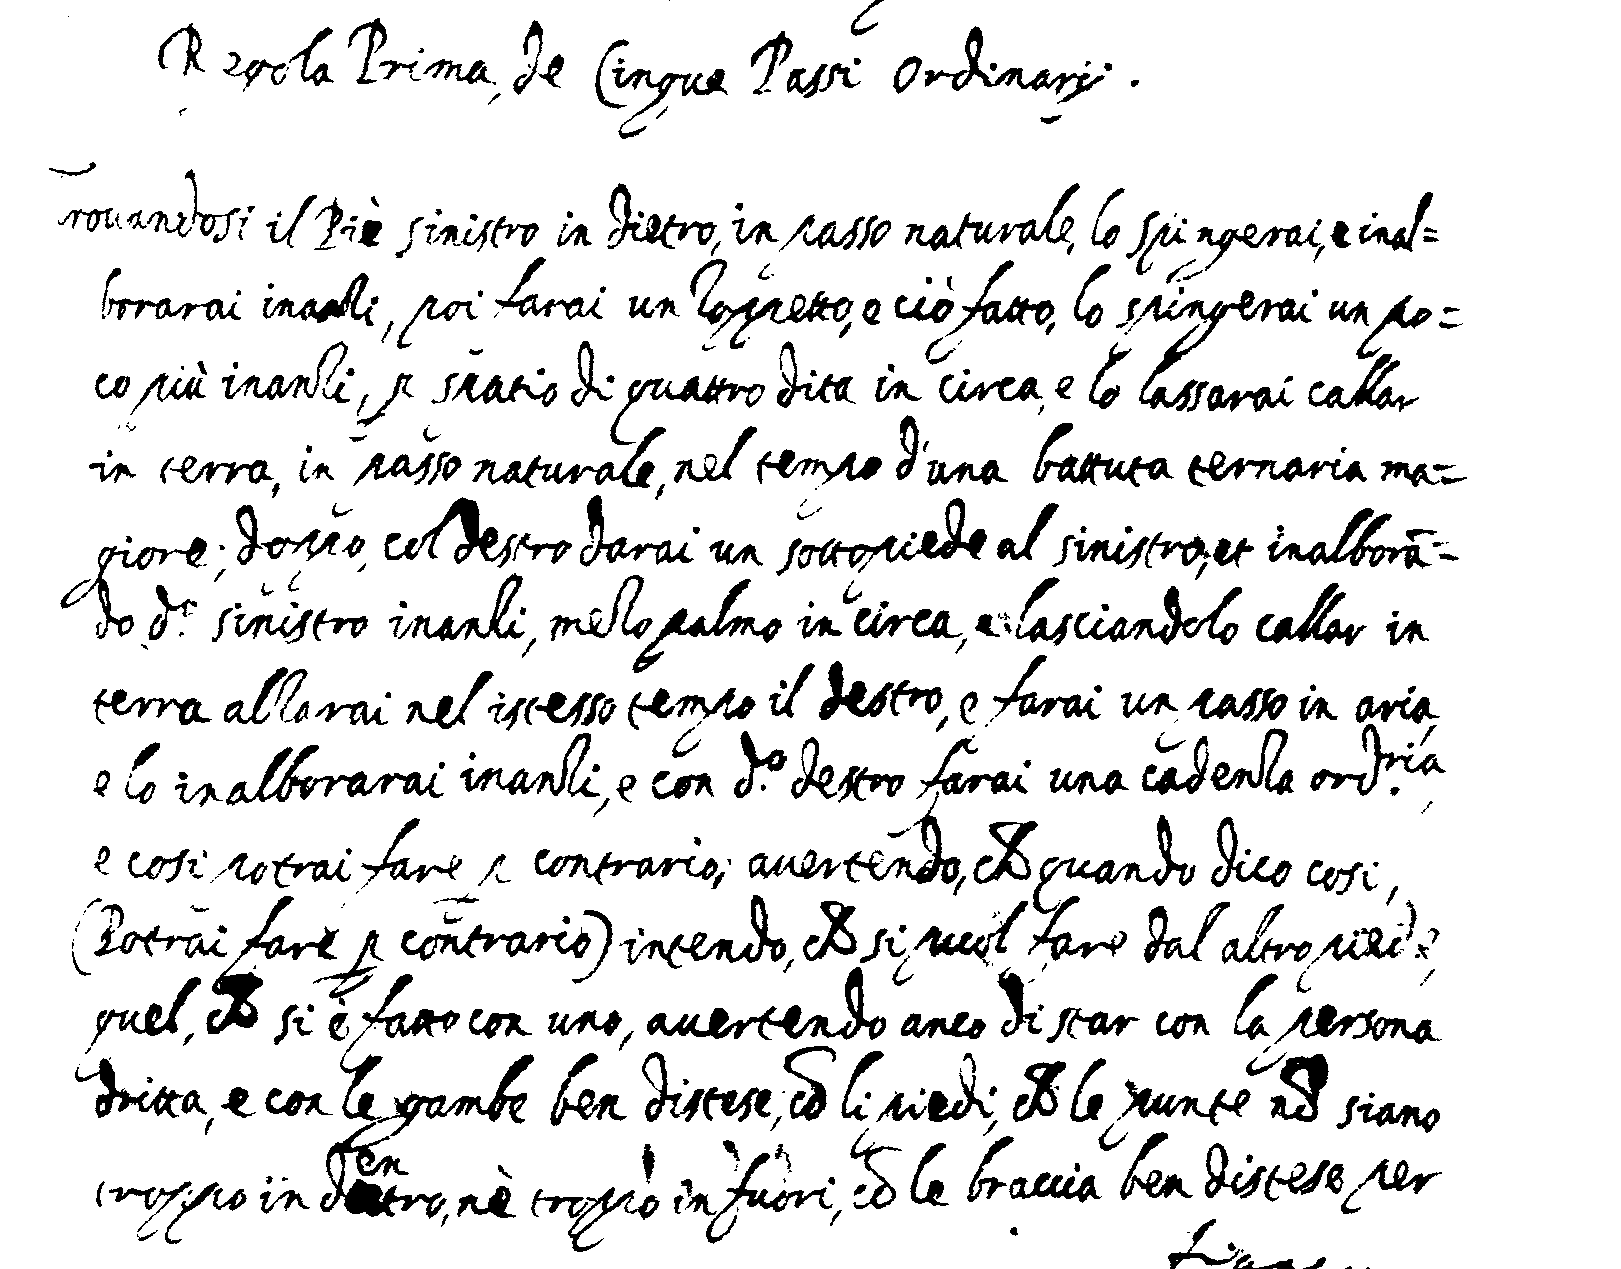 Regola Prima, de Cinque Passi Ordinarij.
Trouandosi il Piè sinistro in dietro, in passo naturale, lo spingerai, e inal=
borarai inanzi, poi farai un Zoppetto, e ciò fatto, lo spingerai un po=
co più inanzi, p spatio di quattro dita in circa, e lo lassarai callar
in terra, in passo naturale, nel tempo d'una battuta ternaria ma=
giore; doppo, col destro darai un sottopiede al sinistro, et inalborā=
do d.º sinistro inanzi, mezo palmo in circa, e lasciandolo callar in
terra alzarai nel istesso tempo il destro, e farai un passo in aria,
e lo inalborarai inanzi, e con d.º destro farai una cadenza ord.ria,
e cosi potrai fare p contrario; auertendo, ch quando dico cosi,
(Potrai fare p contrario) intendo, ch si puol fare dal altro piede,
quel, ch si è fatto con uno, auertendo anco di star con la persona
dritta, e con le gambe ben distese, cō li piedi, ch le punte nō siano
troppo in dentro, nè troppo in fuori, cō le braccia ben distese per